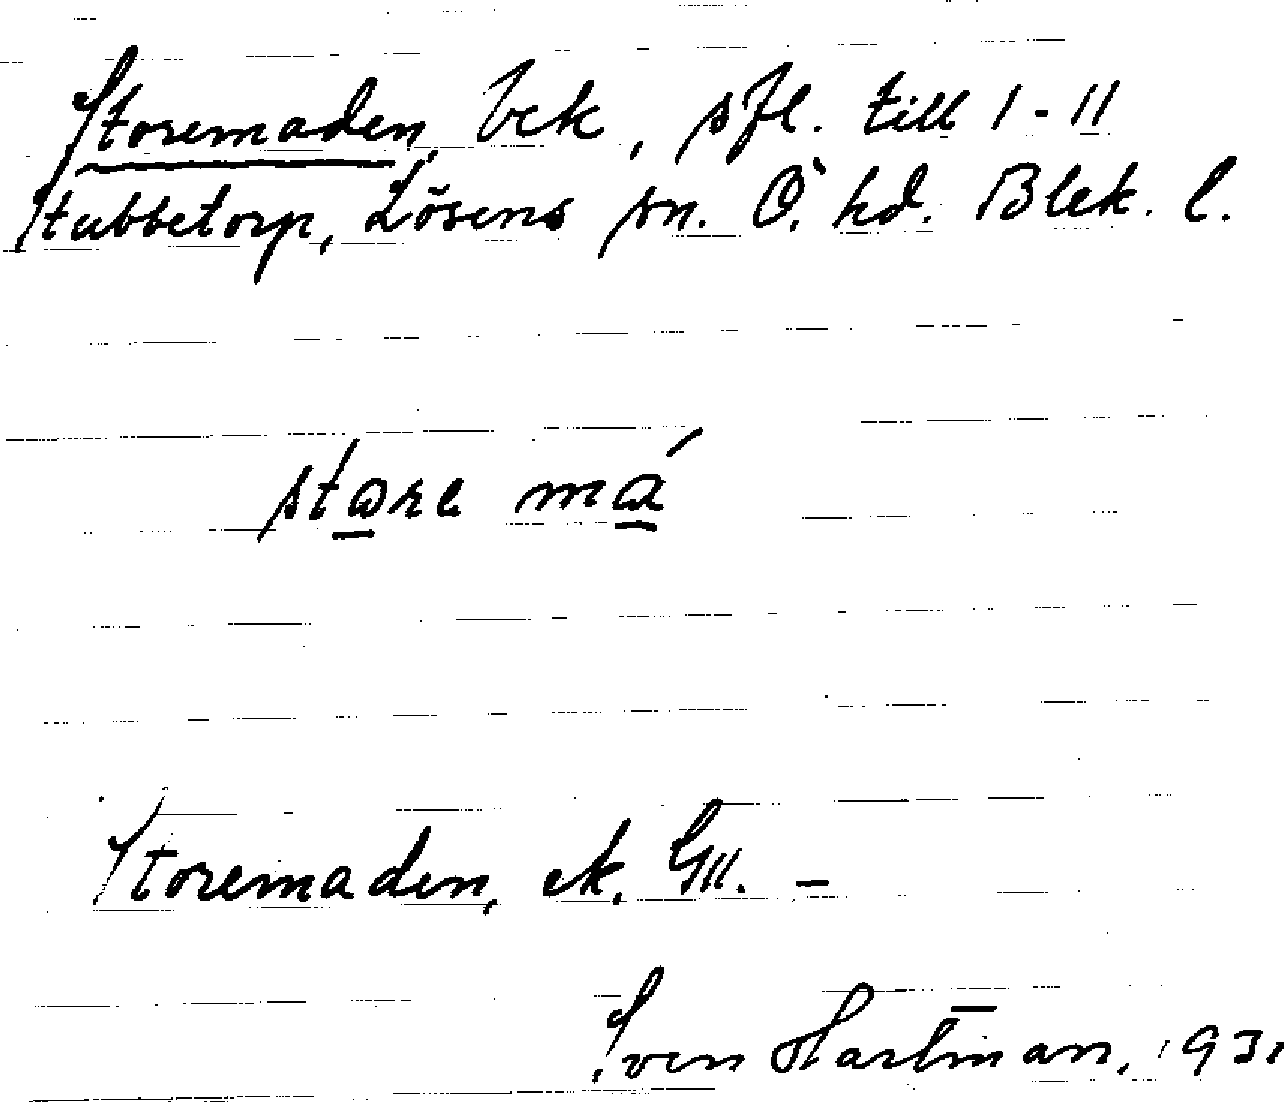 Storemaden, bek, sfl. till 1-11
Stubbetorp, Lösens sn. Ö. hd. Blek. l.
store má
Storemaden, ek. GII. –
Sven Hartman, 1931